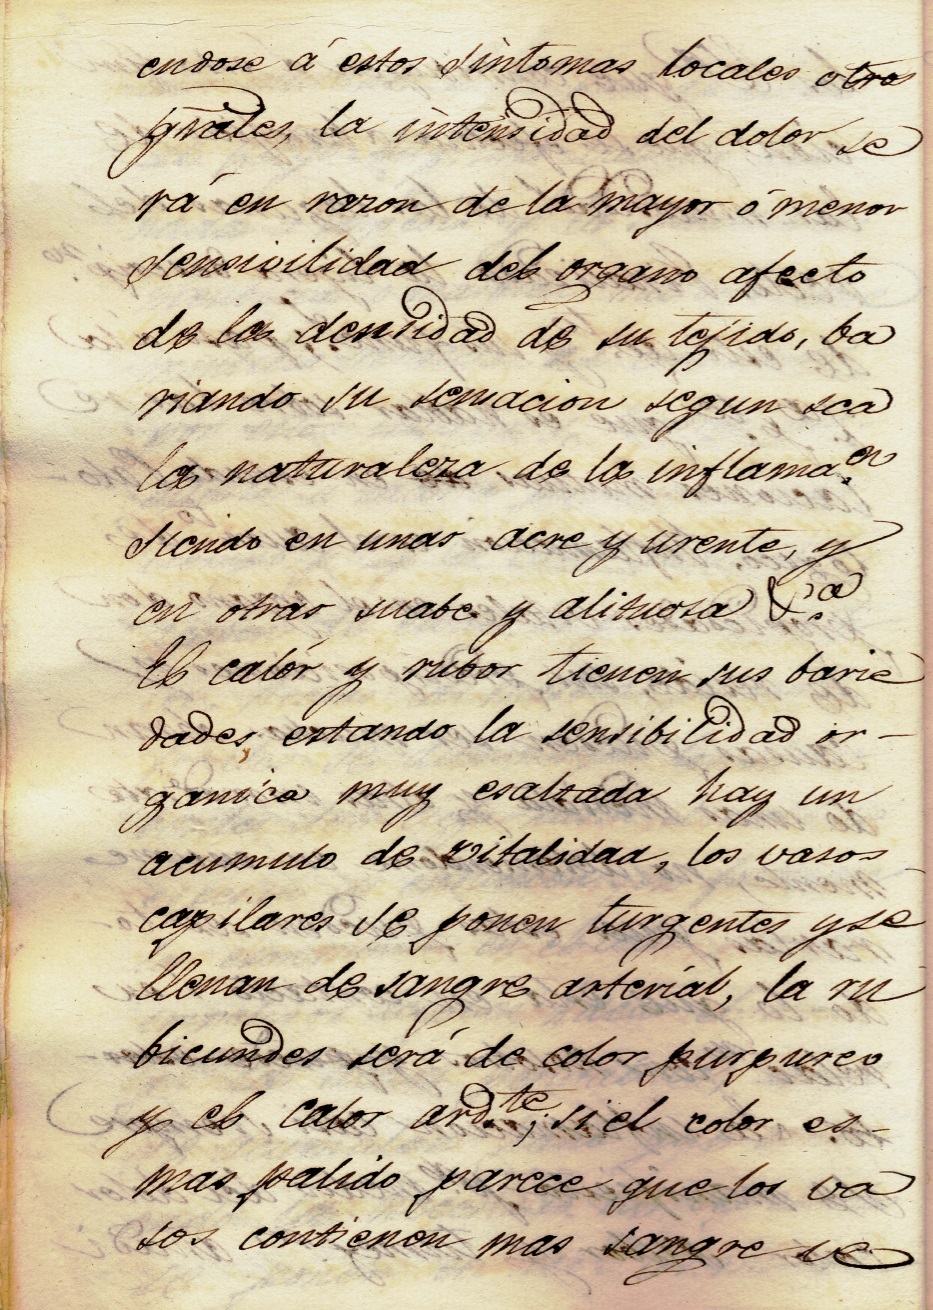 endose á estos sintomas locales otros
grales, la intensidad del dolor se
rá en razon de la mayor ó menor
sensivilidad del organo afecto
de la densidad de su tejido, ba
riando su sensacion segun sea
la naturaleza de la inflama.on
siendo en unas acre y urente, y
en otras suabe y alituosa &.a
El calór y rubor tienen sus barie
dades, estando la sensibilidad or-
ganica muy esaltada hay un
acumulo de vitalidad, los vasos
capilares se ponen turgentes y se
llenan de sangre arterial, la ru
bicundes será de color purpureo
y el calor ard.te; si el color es-
mas palido parece que los va
sos contienen mas sangre ve